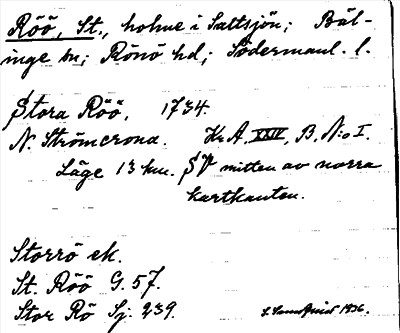 Röö, St., holme i Saltsjön; Bäl-
inge sn; Rönö hd; Södermanl. l.
Stora Röö, 1734.
N. Strömcrona. Kr A. XXIV, B. N:o I.
Läge 13 km. SV mitten av norra
kartkanten.
Storrö ek.
St. Röö G. 57.
Stor Rö Sj. 239.
1936.